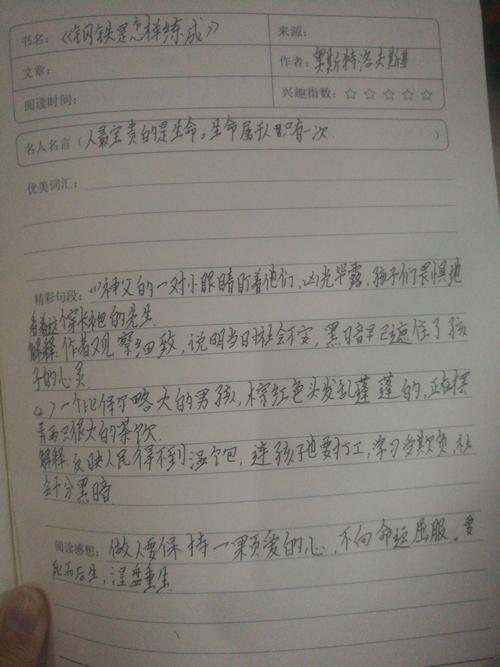 书名：《钢铁是怎样练成》 来源：
文章： 作者：奥斯特洛夫斯基
阅读时间： 兴趣指数：☆ ☆ ☆ ☆ ☆
名人名言（人最宝贵的是生命。生命属于人只有一次 ）
优美词汇：
精彩句段：(1)神父的一对小眼睛盯着他们，凶光毕露。孩子们畏惧地
看着这个穿长袍的先生
解释：作者观察细致，说明当日社会不安，黑暗早已遮住了孩
子的心灵
(2)一个比保尔略大的男孩，棕红色头发乱蓬蓬的，正在摆
弄两只很大的茶炊
解释 反映人民得不到温饱，连孩子也要打工，学习多欺负 社
会十分黑暗
阅读感想：做人要保持一颗爱的心，不向命运屈服。要
死而后生，涅盘重生